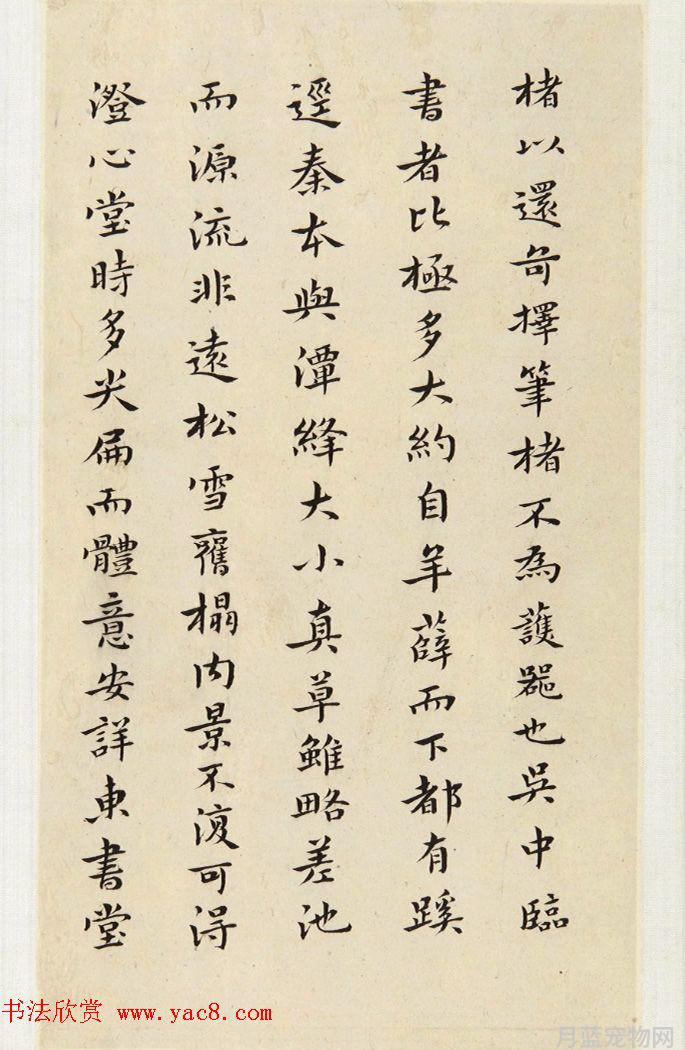 楮以還奇擇筆楮不為護器也吳中臨
書者比極多大約自羊薛而下都有蹊
逕秦本與潭絳大小真草雖略差池
而源流非遠松雪舊榻內景不復可得
澄心堂時多尖扁而體意安詳東書堂
书法欣赏 www.yac8.com
月蓝宠物网